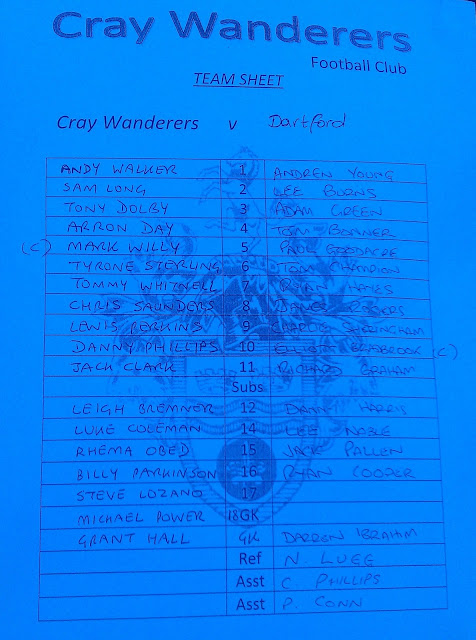 Cray Wanderers
Football Club
TEAM SHEET
Cray Wanderers v Dartford
ANDY WALKER 1 ANDREW YOUNG
SAM LONG 2 LEE BURNS
TONY DOLBY 3 ADAM GREEN
ARRON DAY 4 TOM BONNER
(C) MARK WILLY 5 PAUL GOODACRE
TYRONE STERLING 6 TOM CHAMPION
TOMMY WHITNELL 7 RYAN HAYES
CHRIS SAUNDERS 8 ROGERS
LEWIS PERKINS 9 CHARLIE SHERINGHAM
DANNY PHILLIPS 10 ELLIOT BRADBROOK (C)
JACK CLARK 11 RICHARD GRAHAM
Subs
LEIGH BREMNER 12 DANNY HARRIS
LUKE COLEMAN 14 LEE NOBLE
RHEMA OBED 15 JACK PALLEN
BILLY PARKINSON 16 RYAN COOPER
STEVE LOZANO 17
MICHAEL POWER 18GK
GRANT HALL GK DARREN IBRAHIM
Ref N. LUEE
Asst C PHILLIPS
Asst P. CONN